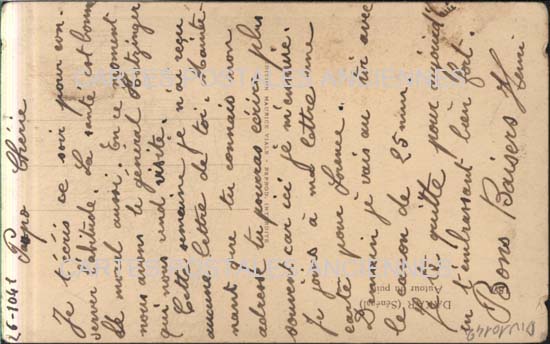 26-10-41
Chérie
Je t'écris ce soir pour con-
server l'habitude. La santé est bonne
Le moral aussi. En ce moment
nous avons le général Huntziger
qui nous rend visite.
Cette semaine je n'ai reçu
aucune lettre de toi. Mainte-
nant que tu connais mon
adresse tu pourras écrire plus
souvent car ici je m'ennuie.
Je joins à ma lettre une
carte pour
Demain je vais au tir avec
le canon de 25 m/m.
Je te quitte pour aujourd'hui
en t'embrassant bien fort.
Bons Baisers Henri
DAKAR (Sénégal)
Autour du puits
CARTES POSTALES ANCIENNES
CARTES POSTALES ANCIENNES